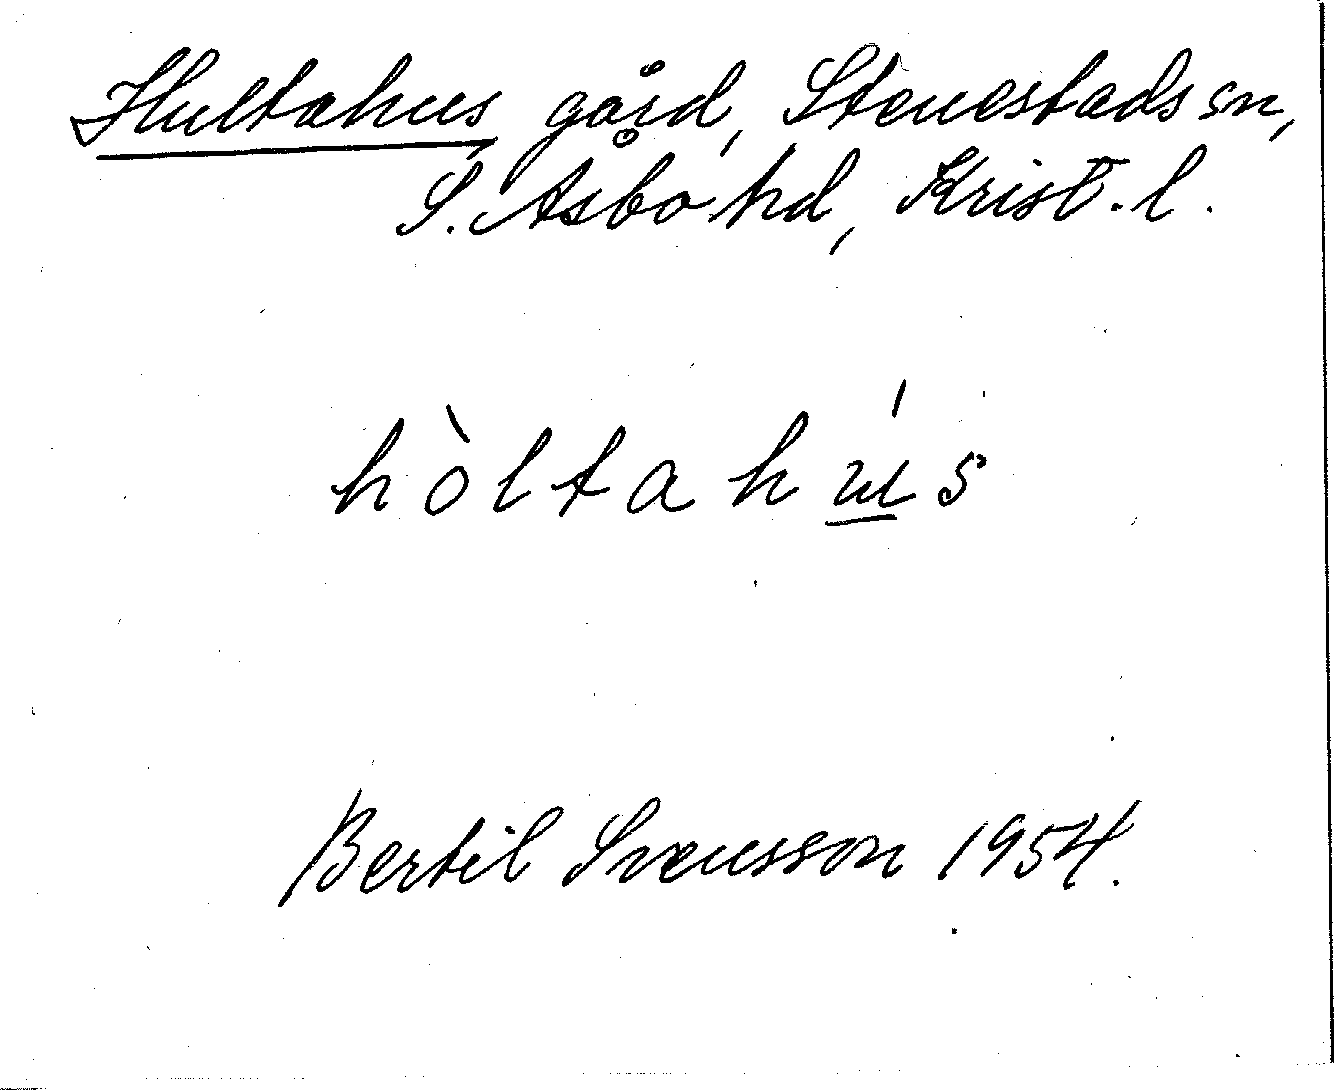 Hultahus gård, Stenestads sn,
S. Åsbo hd, Krist. l.
hòltahú̲s
Bertil Svensson 1954.